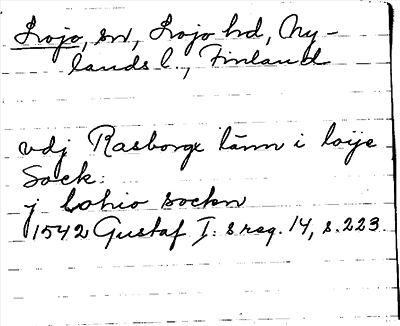 Lojo, sn, Lojo hd, Ny-
lands l., Finland
vdj Rasborgx länn i loije
Sock:
j lohio sockn
1542 Gustaf I:s reg. 14, s. 223.